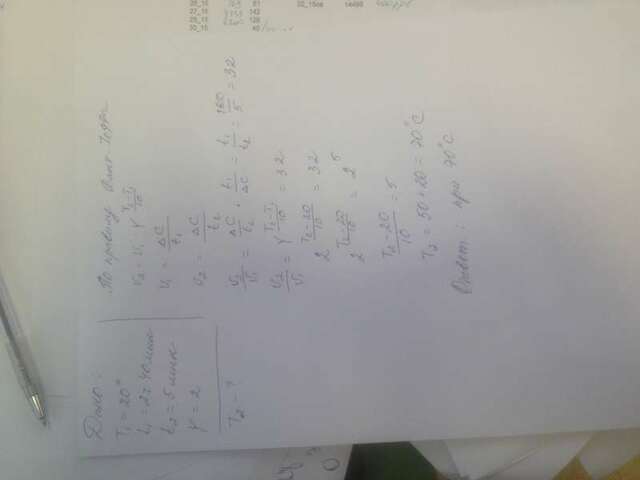 Дано:
T₁ = 20°
t₁ = 2ч 40мин
t₂ = 5 мин
γ = 2
T₂ - ?
По правилу Вант-Гоффа
v₂ = v₁ · γ^((T₂-T₁)/10)
v₁ = ΔC/t₁
v₂ = ΔC/t₂
v₂/v₁ = ΔC/t₂ · t₁/ΔC = t₁/t₂ = 160/5 = 32
v₂/v₁ = γ^((T₂-T₁)/10) = 32
2^((T₂-20)/10) = 32
2^((T₂-20)/10) = 2⁵
(T₂-20)/10 = 5
T₂ = 50+20 = 70°C
Ответ: при 70°C